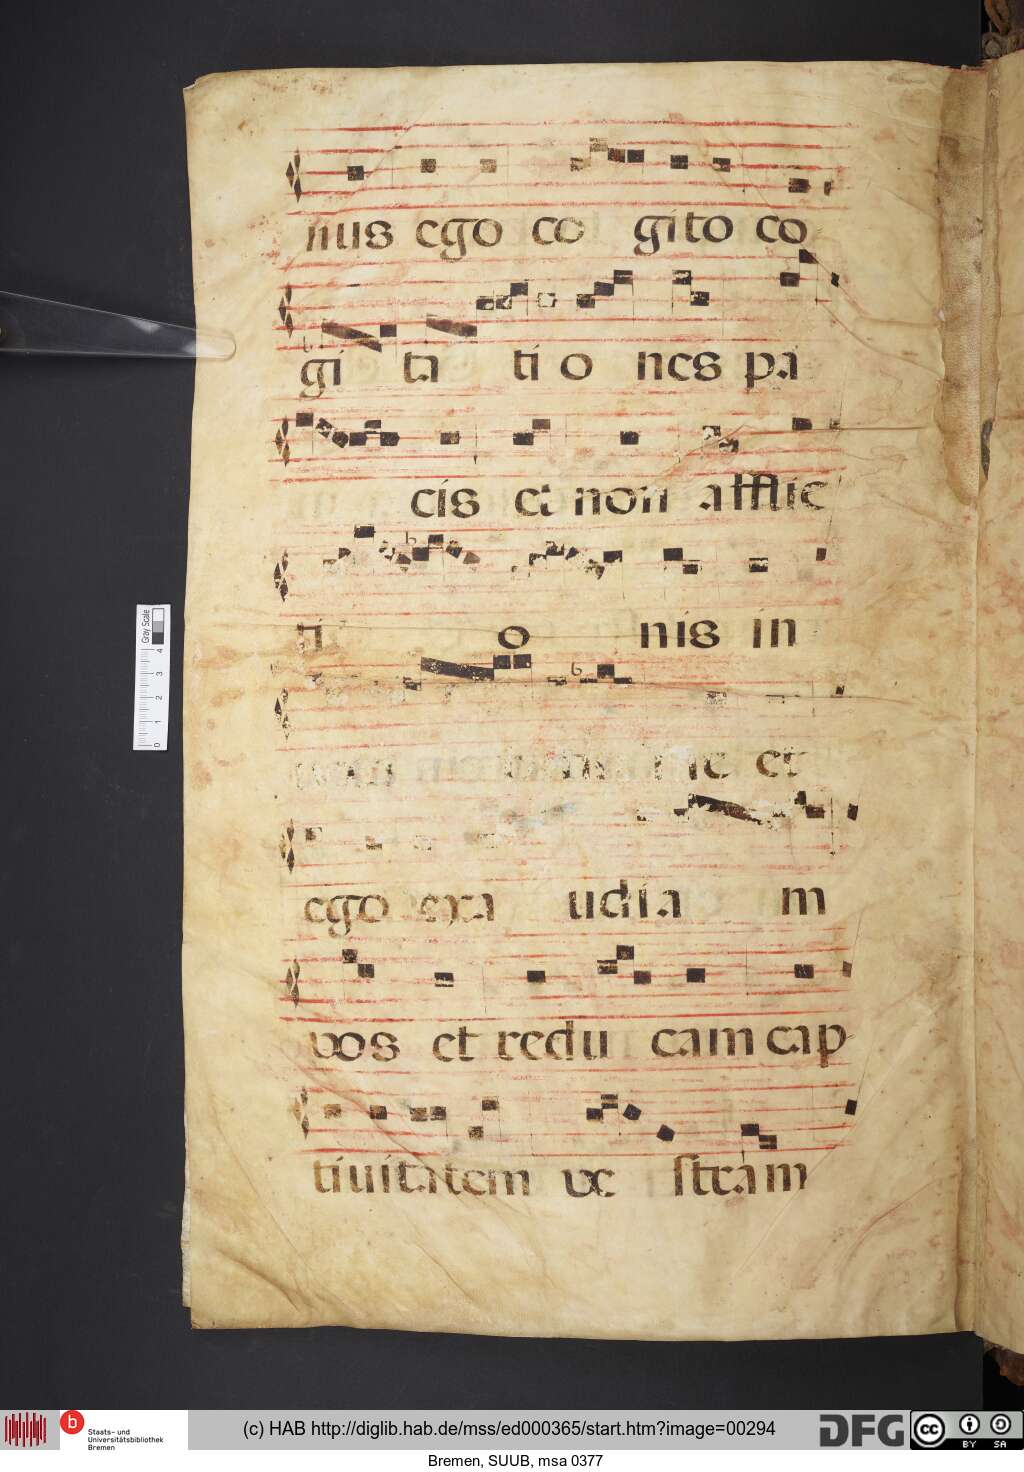 nus ego co gito co
gi ta ti o nes pa
cis et non afflic
ti o nis in
me et
ego exa udi a m
vos et redu cam cap
tiuitatem ve stram
Gray Scale
0 1 2 3 4
Staats- und
Universitätsbibliothek
Bremen
(c) HAB http://diglib.hab.de/mss/ed000365/start.htm?image=00294
DFG
cc BY SA
Bremen, SUUB, msa 0377